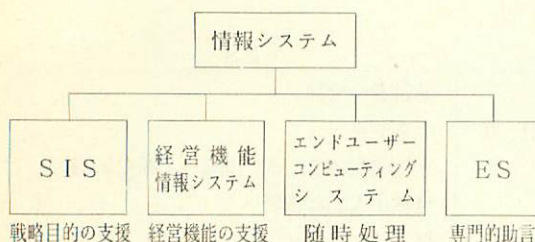 情報システム
SIS
経営機能
情報システム
エンドユーザー
コンピューティング
システム
ES
戦略目的の支援
経営機能の支援
随時処理
専門的助言